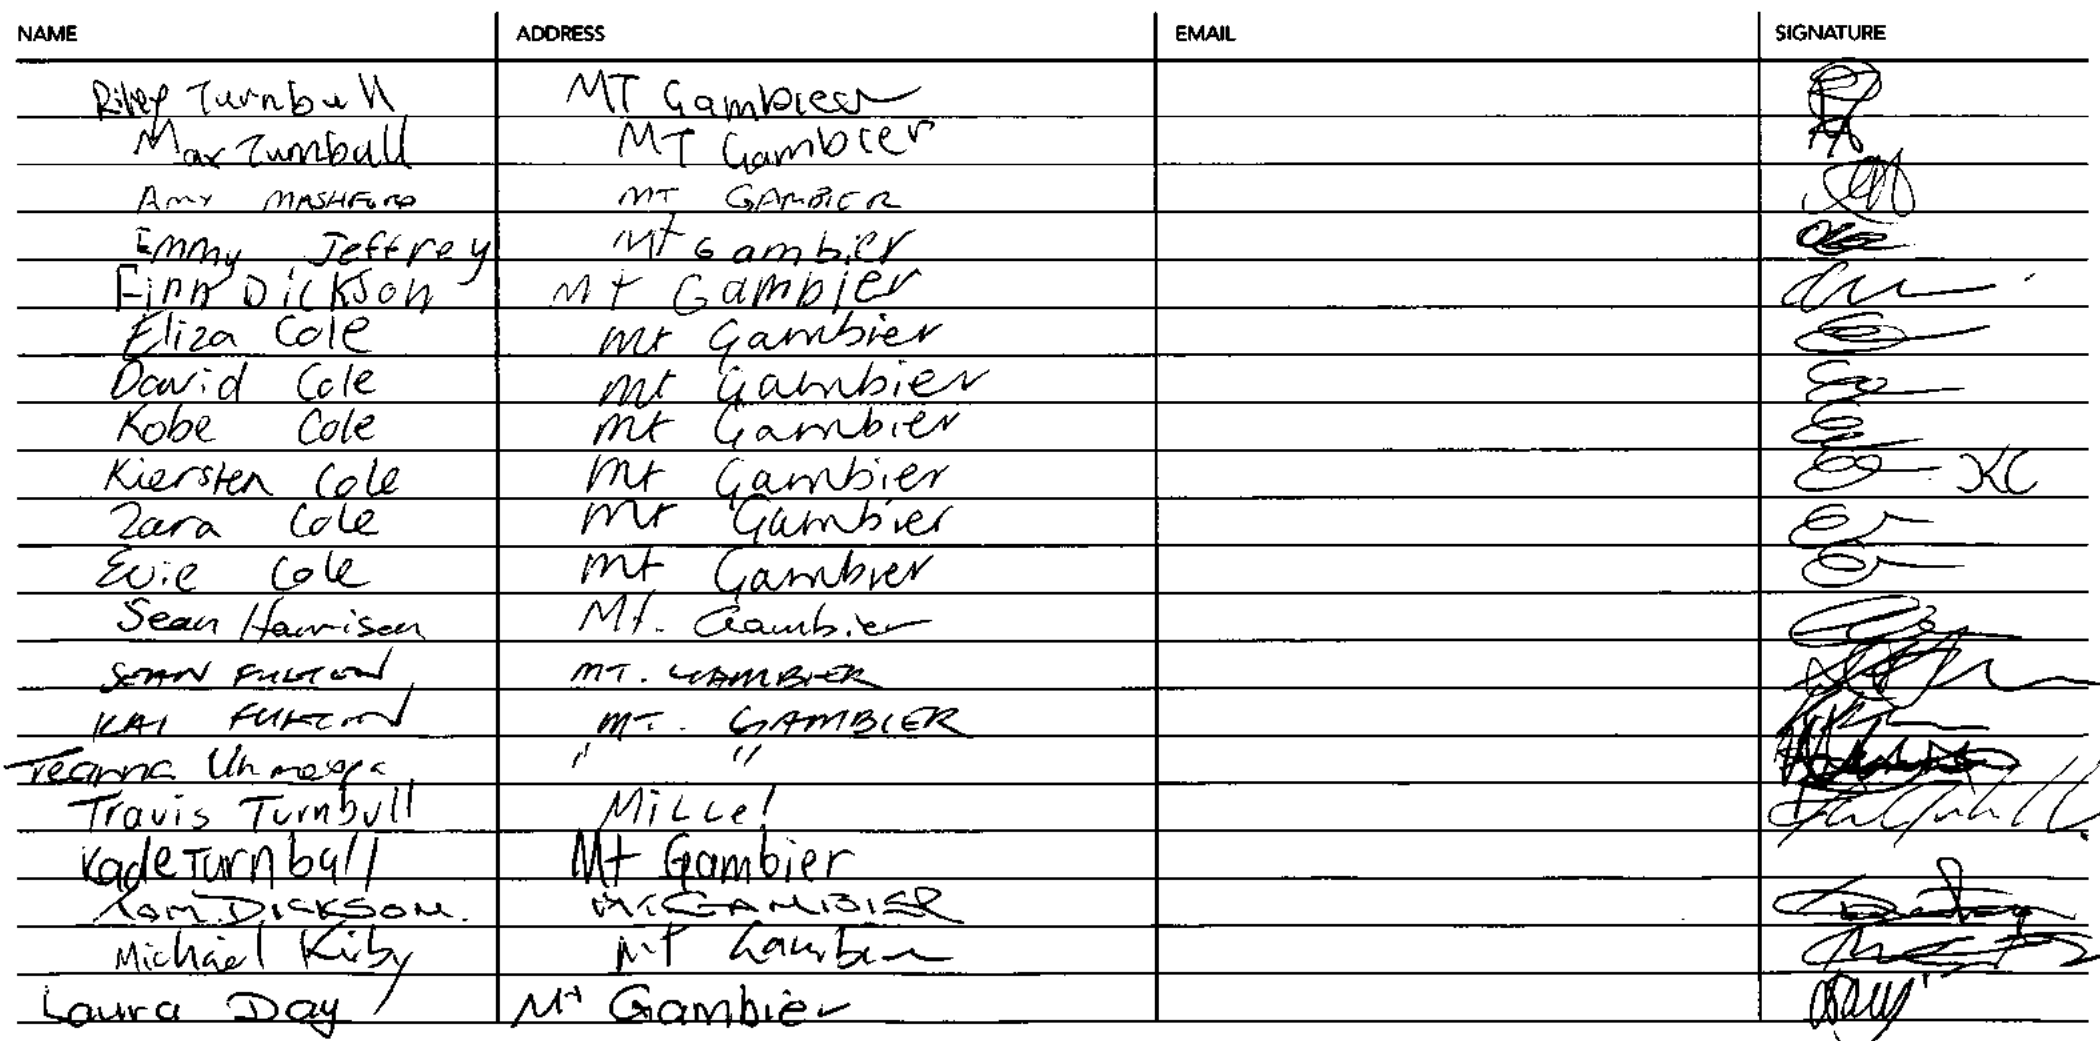 NAME ADDRESS EMAIL SIGNATURE
Riley Turnbull MT Gambier
Max Turnbull MT Gambier
Amy MASHFORD MT GAMBIER
Emmy Jeffrey Mt Gambier
Finn Dickson Mt Gambier
Eliza Cole Mt Gambier
David Cole Mt Gambier
Kobe Cole Mt Gambier
Kiersten Cole Mt Gambier KC
Zara Cole Mt Gambier
Evie Cole Mt Gambier
Sean Harrison Mt. Gambier
SEAN FULTON MT. GAMBIER
KAI FULTON MT. GAMBIER
" "
Travis Turnbull MiLLel
Kade Turnbull Mt Gambier
Tom DICKSON. MT GAMBIER
Michael Kirby Mt Gambier
Laura Day Mt Gambier